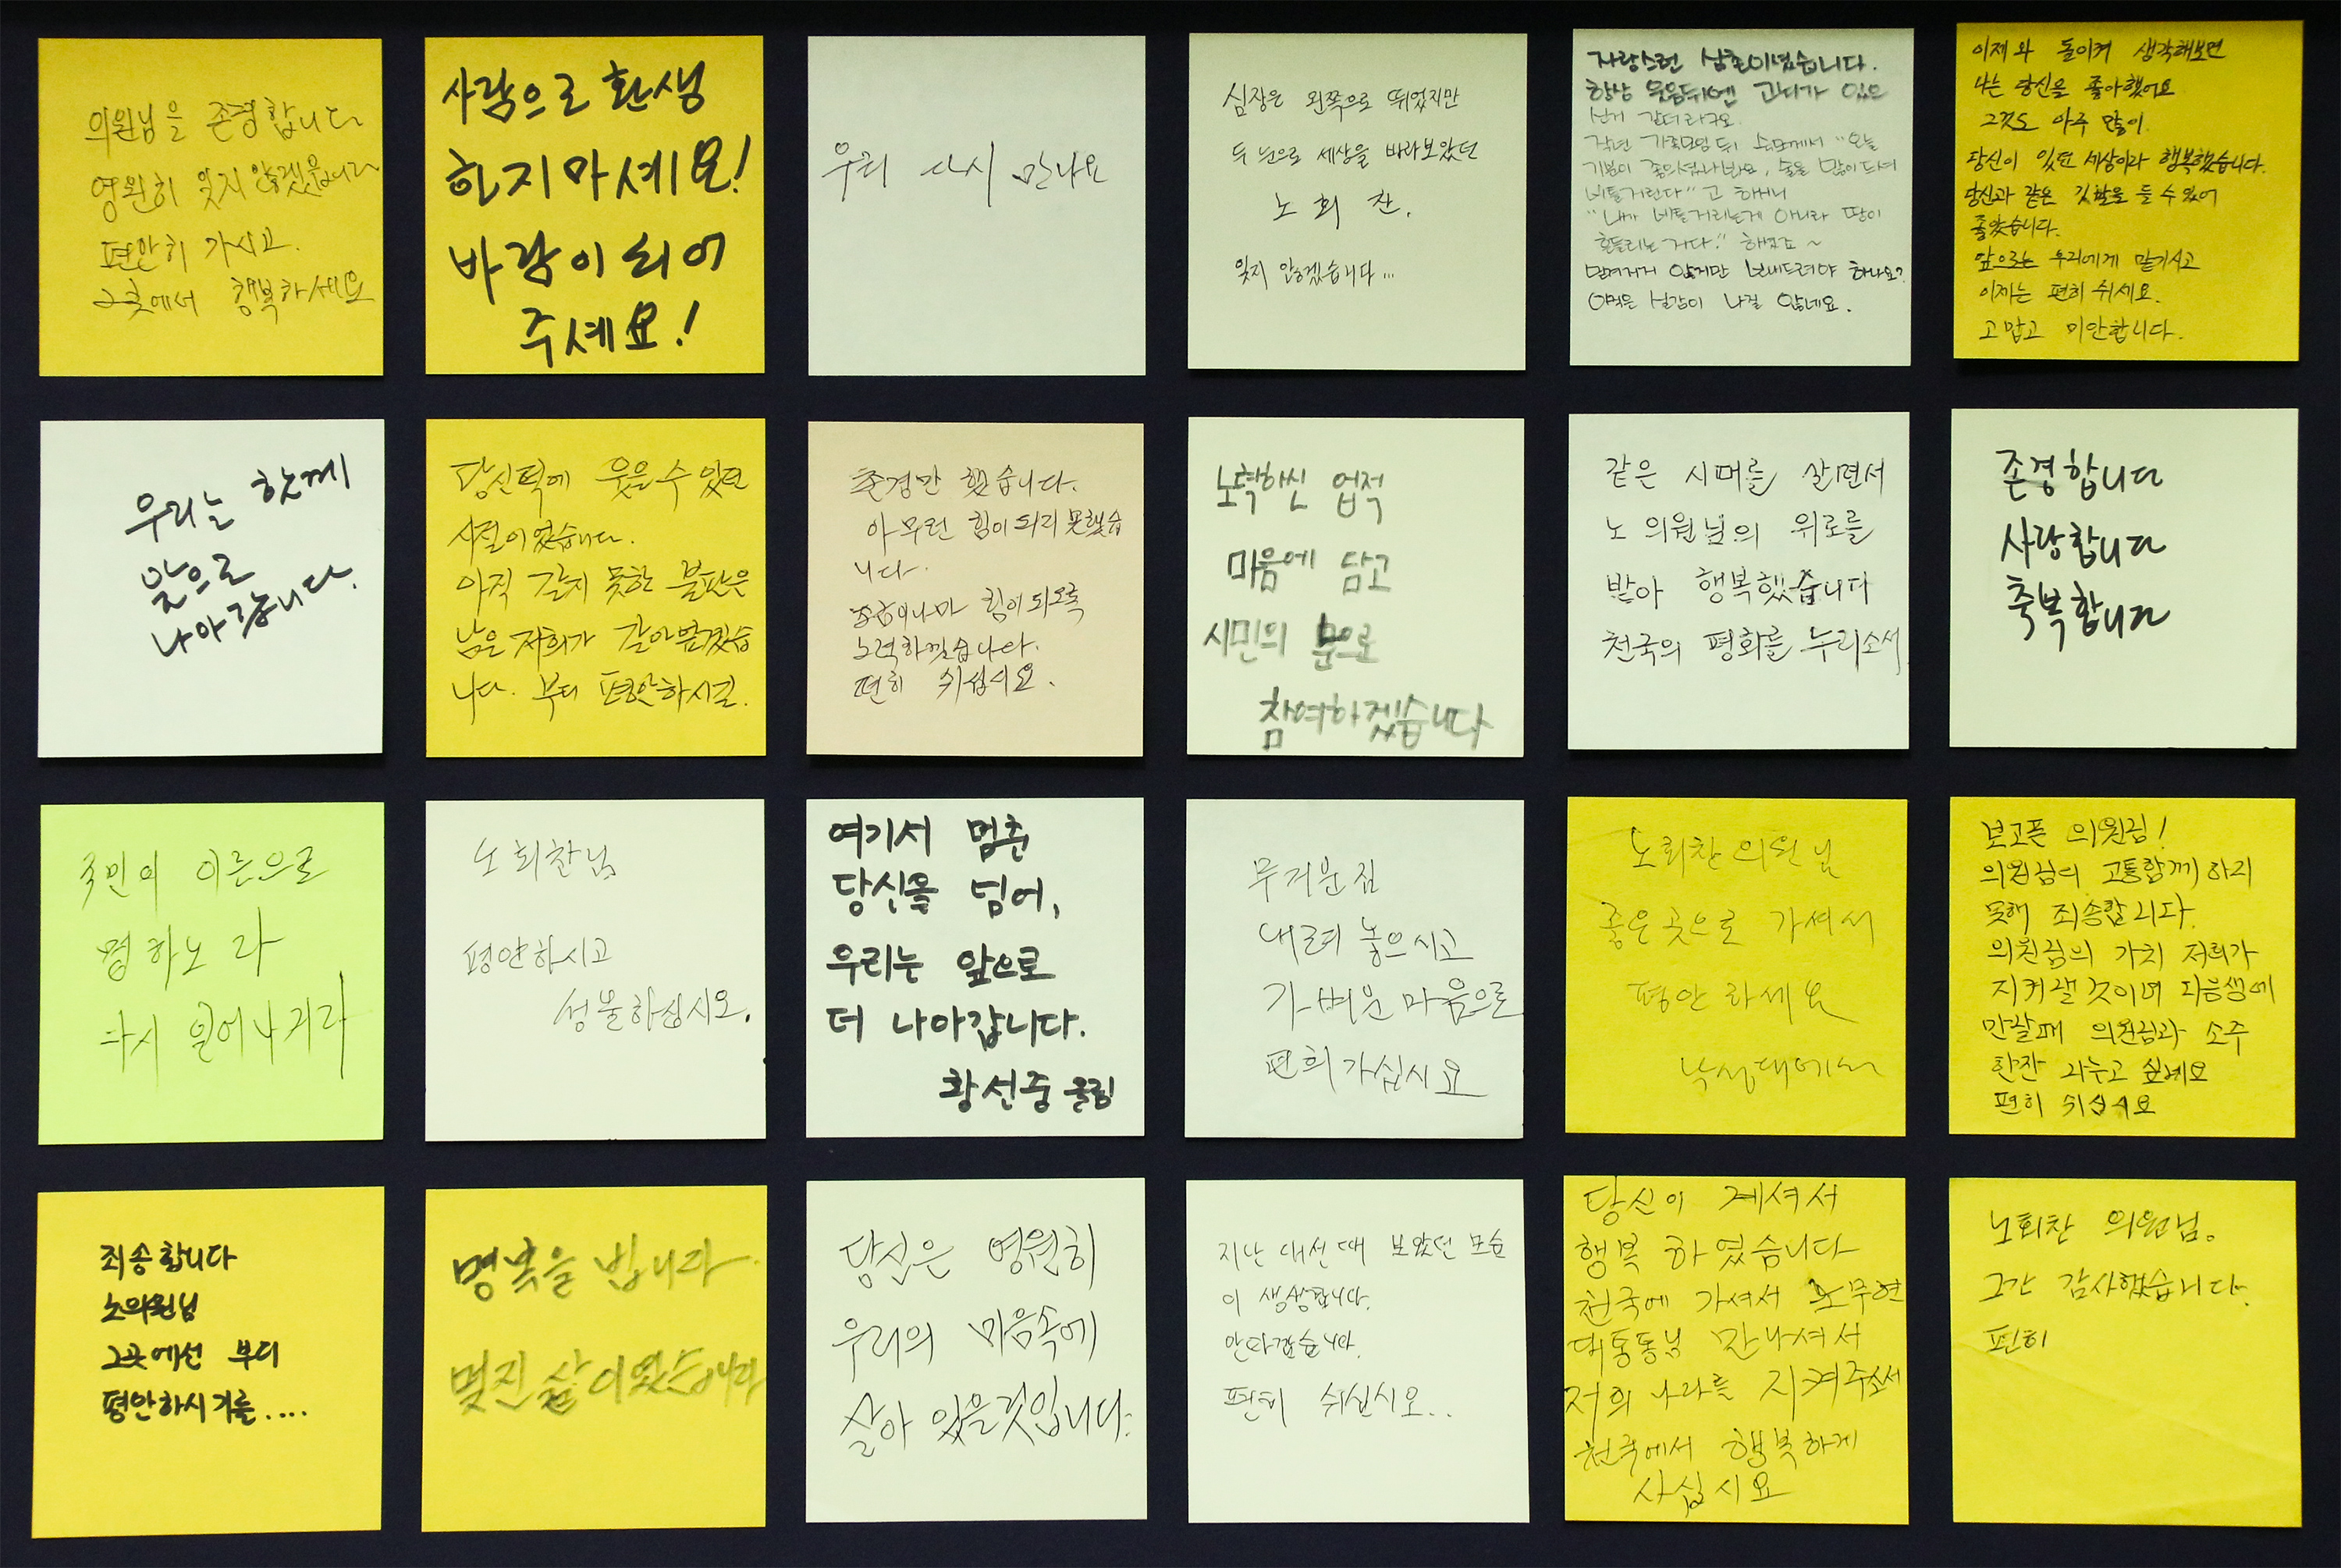 의원님을 존경합니다
영원히 잊지 않겠습니다
편안히 가시고.
그곳에서 행복하세요
사람으로 환생
하지마세요!
바람이 되어
주세요!
우리 다시 만나요
심장은 왼쪽으로 뛰었지만
두 눈으로 세상을 바라보았던
노회찬.
잊지 않겠습니다...
자랑스런 삼촌이셨습니다.
항상 웃음뒤엔 고뇌가 있으
신거 같더라구요.
작년 가족모임 뒤 숙모께서 "오늘
기분이 좋으셨나봐요, 술을 많이드셔
비틀거린다"고 하셔니
"내가 비틀거리는게 아니라 땅이
흔들리는거다." 하셨죠~
믿겨지지 않지만 보내드려야 하나요?
아직은 실감이 나질 않네요.
이제와 돌이켜 생각해보면
나는 당신을 좋아했어요
그것도 아주 많이.
당신이 있던 세상이라 행복했습니다.
당신과 같은 깃발을 들 수 있어
좋았습니다.
앞으로는 우리에게 맡기시고
이제는 편히 쉬세요.
고맙고 미안합니다.
우리는 함께
앞으로
나아갑니다.
당신턱에 웃을 수 있던
시절이었습니다.
아직 갈지 못한 불판은
남은 저희가 갈아보겠습
니다. 부디 평안하시길.
존경만 했습니다.
아무런 힘이 되지 못했습
니다.
조금이나마 힘이 되도록
노력하겠습니다.
편히 쉬십시요.
노력하신 업적
마음에 담고
시민의 눈으로
참여하겠습니다
같은 시대를 살면서
노 의원님의 위로를
받아 행복했습니다
천국의 평화를 누리소서
존경합니다
사랑합니다
축복합니다
국민의 이름으로
명하노라
다시 일어나거라
노회찬님
평안하시고
성불하십시오.
여기서 멈춘
당신을 넘어,
우리는 앞으로
더 나아갑니다.
황선중 올림
무거운짐
내려 놓으시고
가벼운 마음으로
편히가십시요
노회찬 의원님
좋은곳으로 가셔서
평안하세요
낙성대에서
보고픈 의원님!
의원님의 고통함께 하지
못해 죄송합니다.
의원님의 가치 저희가
지켜갈것이며 다음생에
만날때 의원님과 소주
한잔 나누고 싶네요
편히 쉬십시요
죄송합니다
노의원님
그곳에선 부디
평안하시기를....
명복을 빕니다.
멋진 삶이었습니다
당신은 영원히
우리의 마음속에
살아 있을것입니다.
지난 대선 때 보았던 모습
이 생생합니다.
안타깝습니다.
편히 쉬십시오..
당신이 계셔서
행복 하였습니다
천국에 가셔서 노무현
대통통님 만나셔서
저희 나라를 지켜주소서
천국에서 행복하게
사십시요
노회찬 의원님.
그간 감사했습니다.
편히